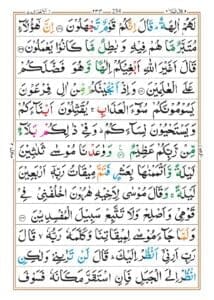 لَهُمْ اٰلِهَةٌ ؕ قَالَ اِنَّكُمْ قَوْمٌ تَجْهَلُوْنَ ۝ اِنَّ هٰۤؤُلَآءِ
مُتَبَّرٌ مَّا هُمْ فِيْهِ وَ بٰطِلٌ مَّا كَانُوْا يَعْمَلُوْنَ ۝
قَالَ اَغَيْرَ اللّٰهِ اَبْغِيْكُمْ اِلٰهًا وَّ هُوَ فَضَّلَكُمْ
عَلَى الْعٰلَمِيْنَ ۝ وَ اِذْ اَنْجَيْنٰكُمْ مِّنْ اٰلِ فِرْعَوْنَ
يَسُوْمُوْنَكُمْ سُوْٓءَ الْعَذَابِ ۚ يُقَتِّلُوْنَ اَبْنَآءَكُمْ
وَ يَسْتَحْيُوْنَ نِسَآءَكُمْ ؕ وَ فِيْ ذٰلِكُمْ بَلَآءٌ
مِّنْ رَّبِّكُمْ عَظِيْمٌ ۝ وَ وٰعَدْنَا مُوْسٰى ثَلٰثِيْنَ
لَيْلَةً وَّ اَتْمَمْنٰهَا بِعَشْرٍ فَتَمَّ مِيْقَاتُ رَبِّهٖۤ اَرْبَعِيْنَ
لَيْلَةً ۚ وَ قَالَ مُوْسٰى لِاَخِيْهِ هٰرُوْنَ اخْلُفْنِيْ فِيْ
قَوْمِيْ وَ اَصْلِحْ وَ لَا تَتَّبِعْ سَبِيْلَ الْمُفْسِدِيْنَ ۝
وَ لَمَّا جَآءَ مُوْسٰى لِمِيْقَاتِنَا وَ كَلَّمَهٗ رَبُّهٗ ۙ قَالَ
رَبِّ اَرِنِيْۤ اَنْظُرْ اِلَيْكَ ؕ قَالَ لَنْ تَرٰىنِيْ وَ لٰكِنِ
انْظُرْ اِلَى الْجَبَلِ فَاِنِ اسْتَقَرَّ مَكَانَهٗ فَسَوْفَ